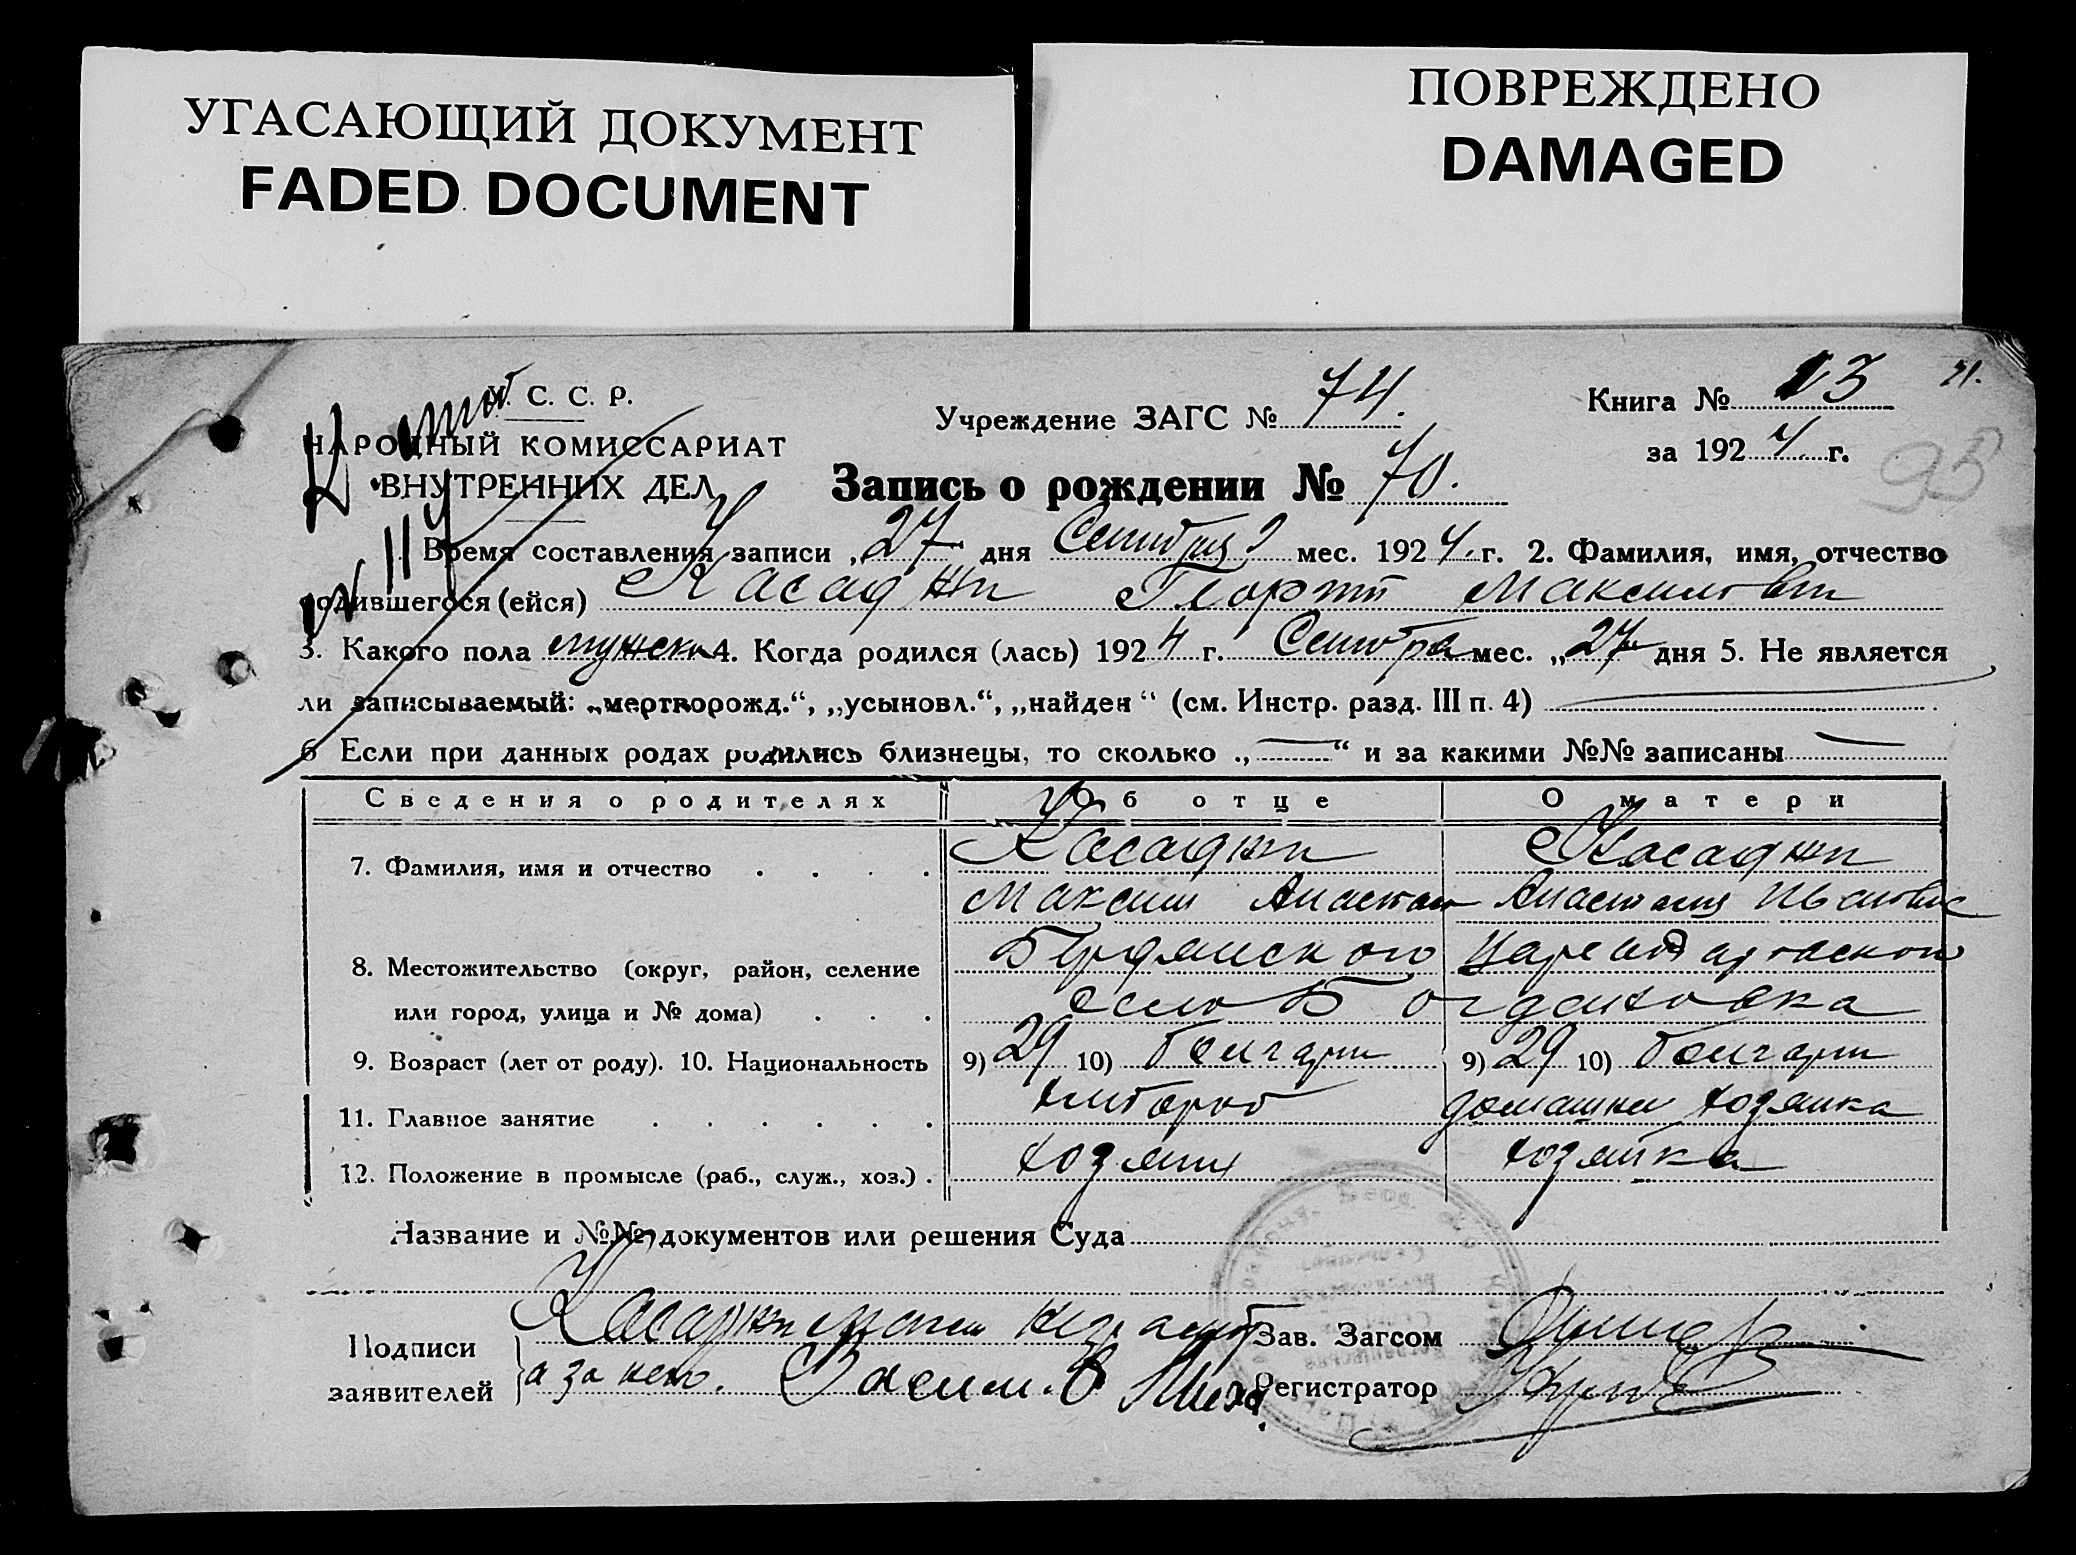 УГАСАЮЩИЙ ДОКУМЕНТ
FADED DOCUMENT
ПОВРЕЖДЕНО
DAMAGED
У. С. С. Р.
НАРОДНЫЙ КОМИССАРИАТ
ВНУТРЕННИХ ДЕЛ
Учреждение ЗАГС № 74.
Книга № 13
за 1924 г.
95
Запись о рождении № 70.
1. Время составления записи „27 дня Сентября мес. 1924 г. 2. Фамилия, имя, отчество
родившегося (ейся) Касаджи Георгий Максимович
3. Какого пола мужск 4. Когда родился (лась) 1924 г. Сентября мес. „27 дня 5. Не является
ли записываемый: „мертворожд.“, „усыновл.“, „найден“ (см. Инстр. разд. III п. 4)
6 Если при данных родах родились близнецы, то сколько „ — “ и за какими №№ записаны —
Сведения о родителях Об отце О матери
7. Фамилия, имя и отчество Касаджи Касаджи
Максим Анастас Анастасия Ивановна
8. Местожительство (округ, район, селение Бердянского Цареводаровского
или город, улица и № дома) село Богдановка
9. Возраст (лет от роду). 10. Национальность 9) 29 10) болгары 9) 29 10) болгары
11. Главное занятие хлебороб домашняя хозяйка
12. Положение в промысле (раб., служ., хоз.) хозяин хозяйка
Название и №№ документов или решения Суда
Подписи Касаджи Зав. Загсом
заявителей а за него Регистратор